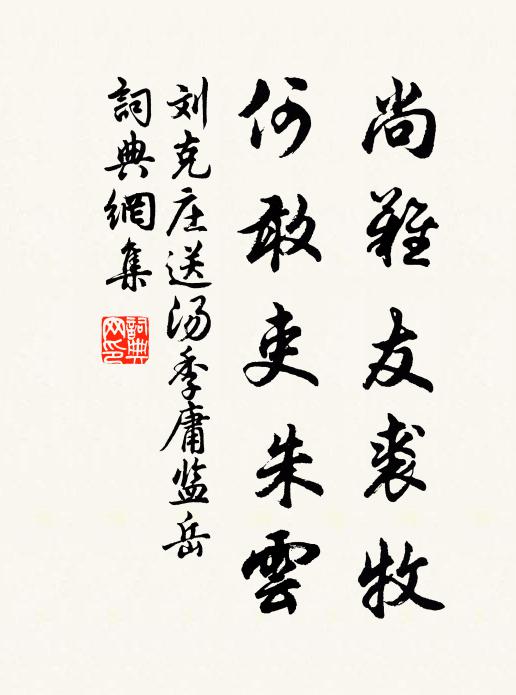 尚難友裘牧
何敢吏朱雲
刘克庄送汤季庸监岳
詞典網集
詞典网印